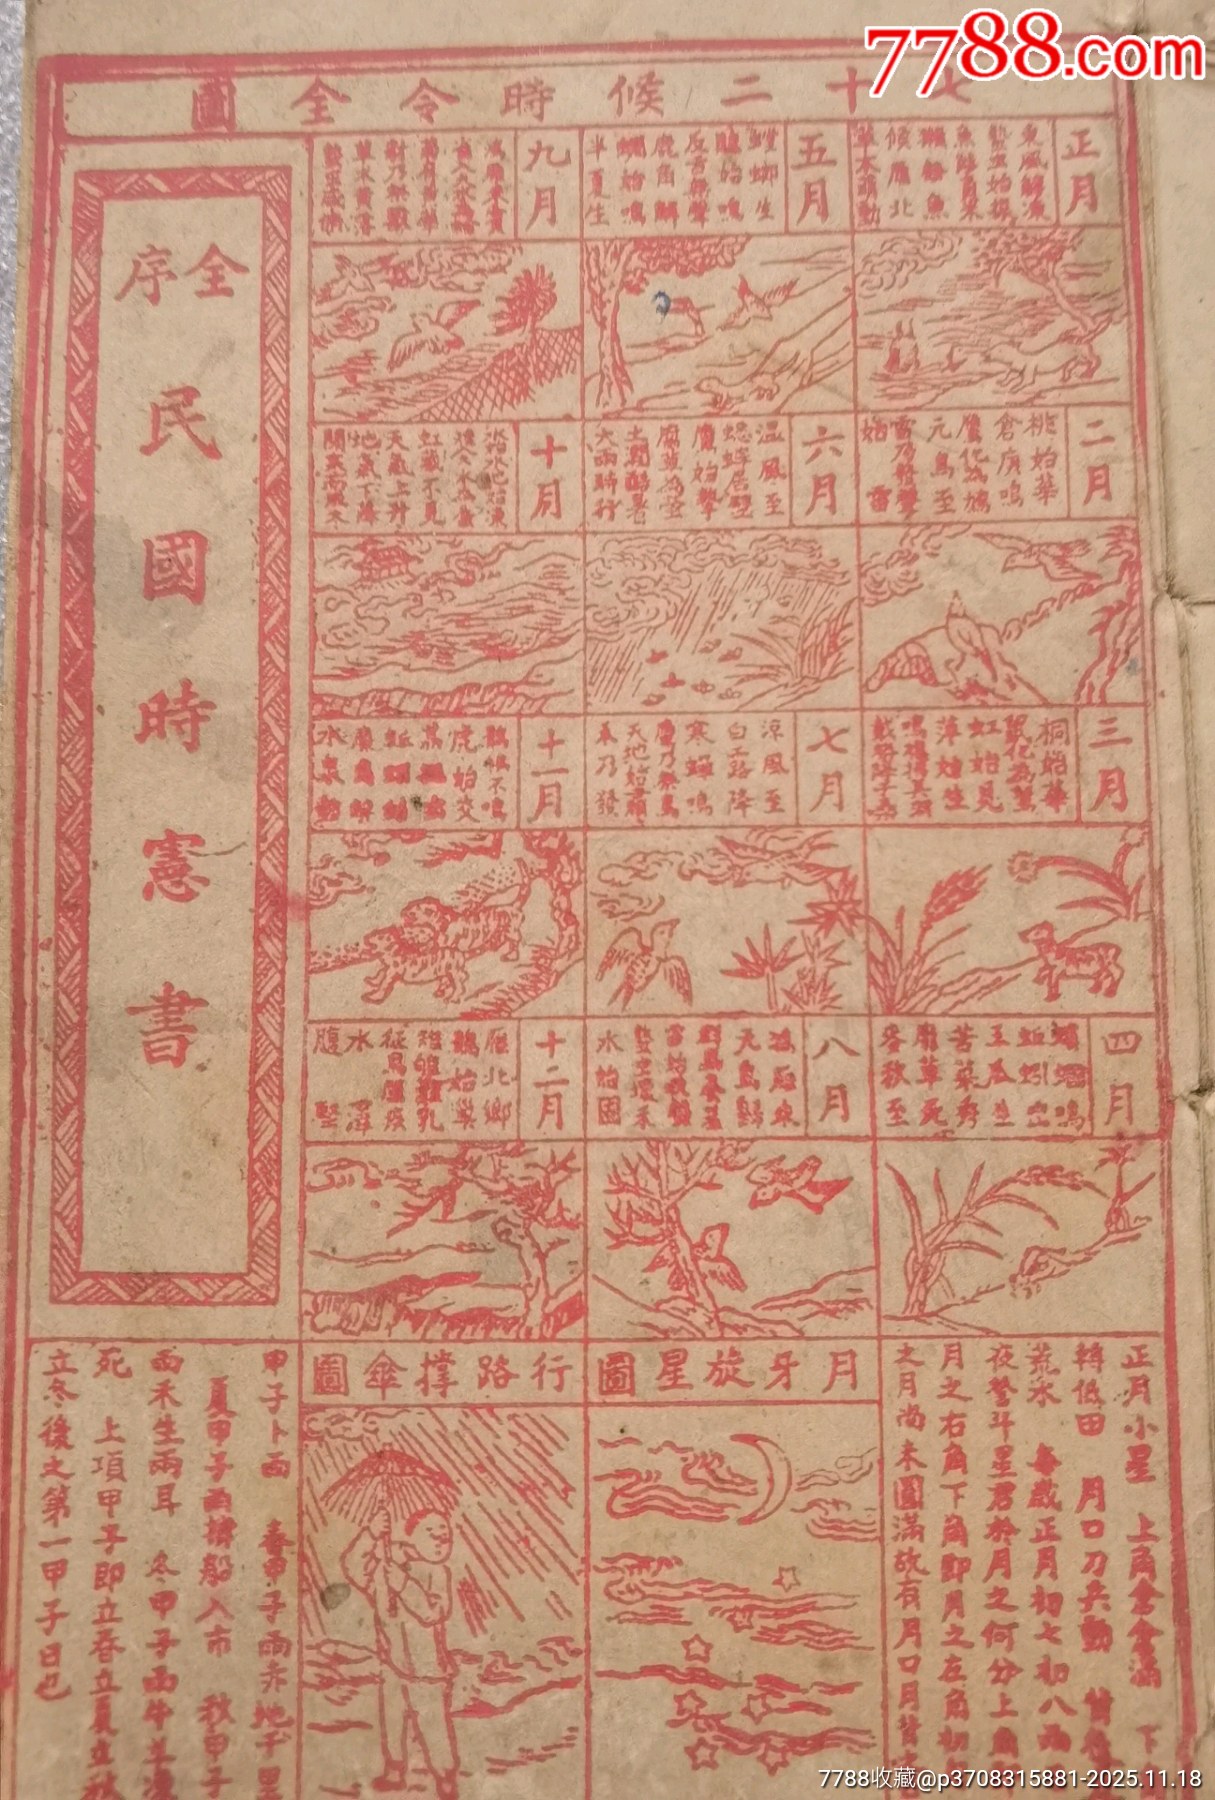 7788.com
七十二候時令全圖
全序
民國時憲書
正月
東風解凍
蟄虫始振
魚陟負冰
獺祭魚
候雁北
草木萌動
二月
桃始華
倉庚鳴
鷹化為鳩
元鳥至
雷乃發聲
始電
三月
桐始華
鼠化為鴽
虹始見
萍始生
四月
螻蟈鳴
蚯蚓出
王瓜生
苦菜秀
靡草死
麥秋至
五月
螳螂生
鵙始鳴
反舌無聲
鹿角解
蜩始鳴
半夏生
六月
溫風至
蟋蟀居壁
鷹始摯
腐草為螢
土潤溽暑
大雨時行
七月
涼風至
白露降
寒蟬鳴
鷹乃祭鳥
天地始肅
禾乃登
八月
鴻雁來
元鳥歸
群鳥養羞
雷始收聲
蟄虫壞户
水始固
九月
鴻雁來賓
草木黃落
十月
水始冰地始凍
虹藏不見
天氣上升
地氣下降
十一月
鶡鴠不鳴
虎始交
荔挺出
蚯蚓結
麋角解
水泉動
十二月
雁北鄉
鵲始巢
雉雊雞乳
征鳥厲疾
水澤
腹堅
月牙旋星圖
行路撐傘圖
正月小星 上角倉倉滿 下
轉低田 月口刀兵動
荒水 每歲正月初七初八兩
夜參斗星君於月之何分上角
月之右角下角即月之左角初
之月尚未圓滿故有月口月背
甲子卜雨 春甲子雨赤地千里
夏甲子雨撐船入市 秋甲子
雨禾生兩耳 冬甲子雨牛羊凍
死 上項甲子即立春立夏立秋
立冬後之第一甲子日也
7788收藏@p3708315881-2025.11.18